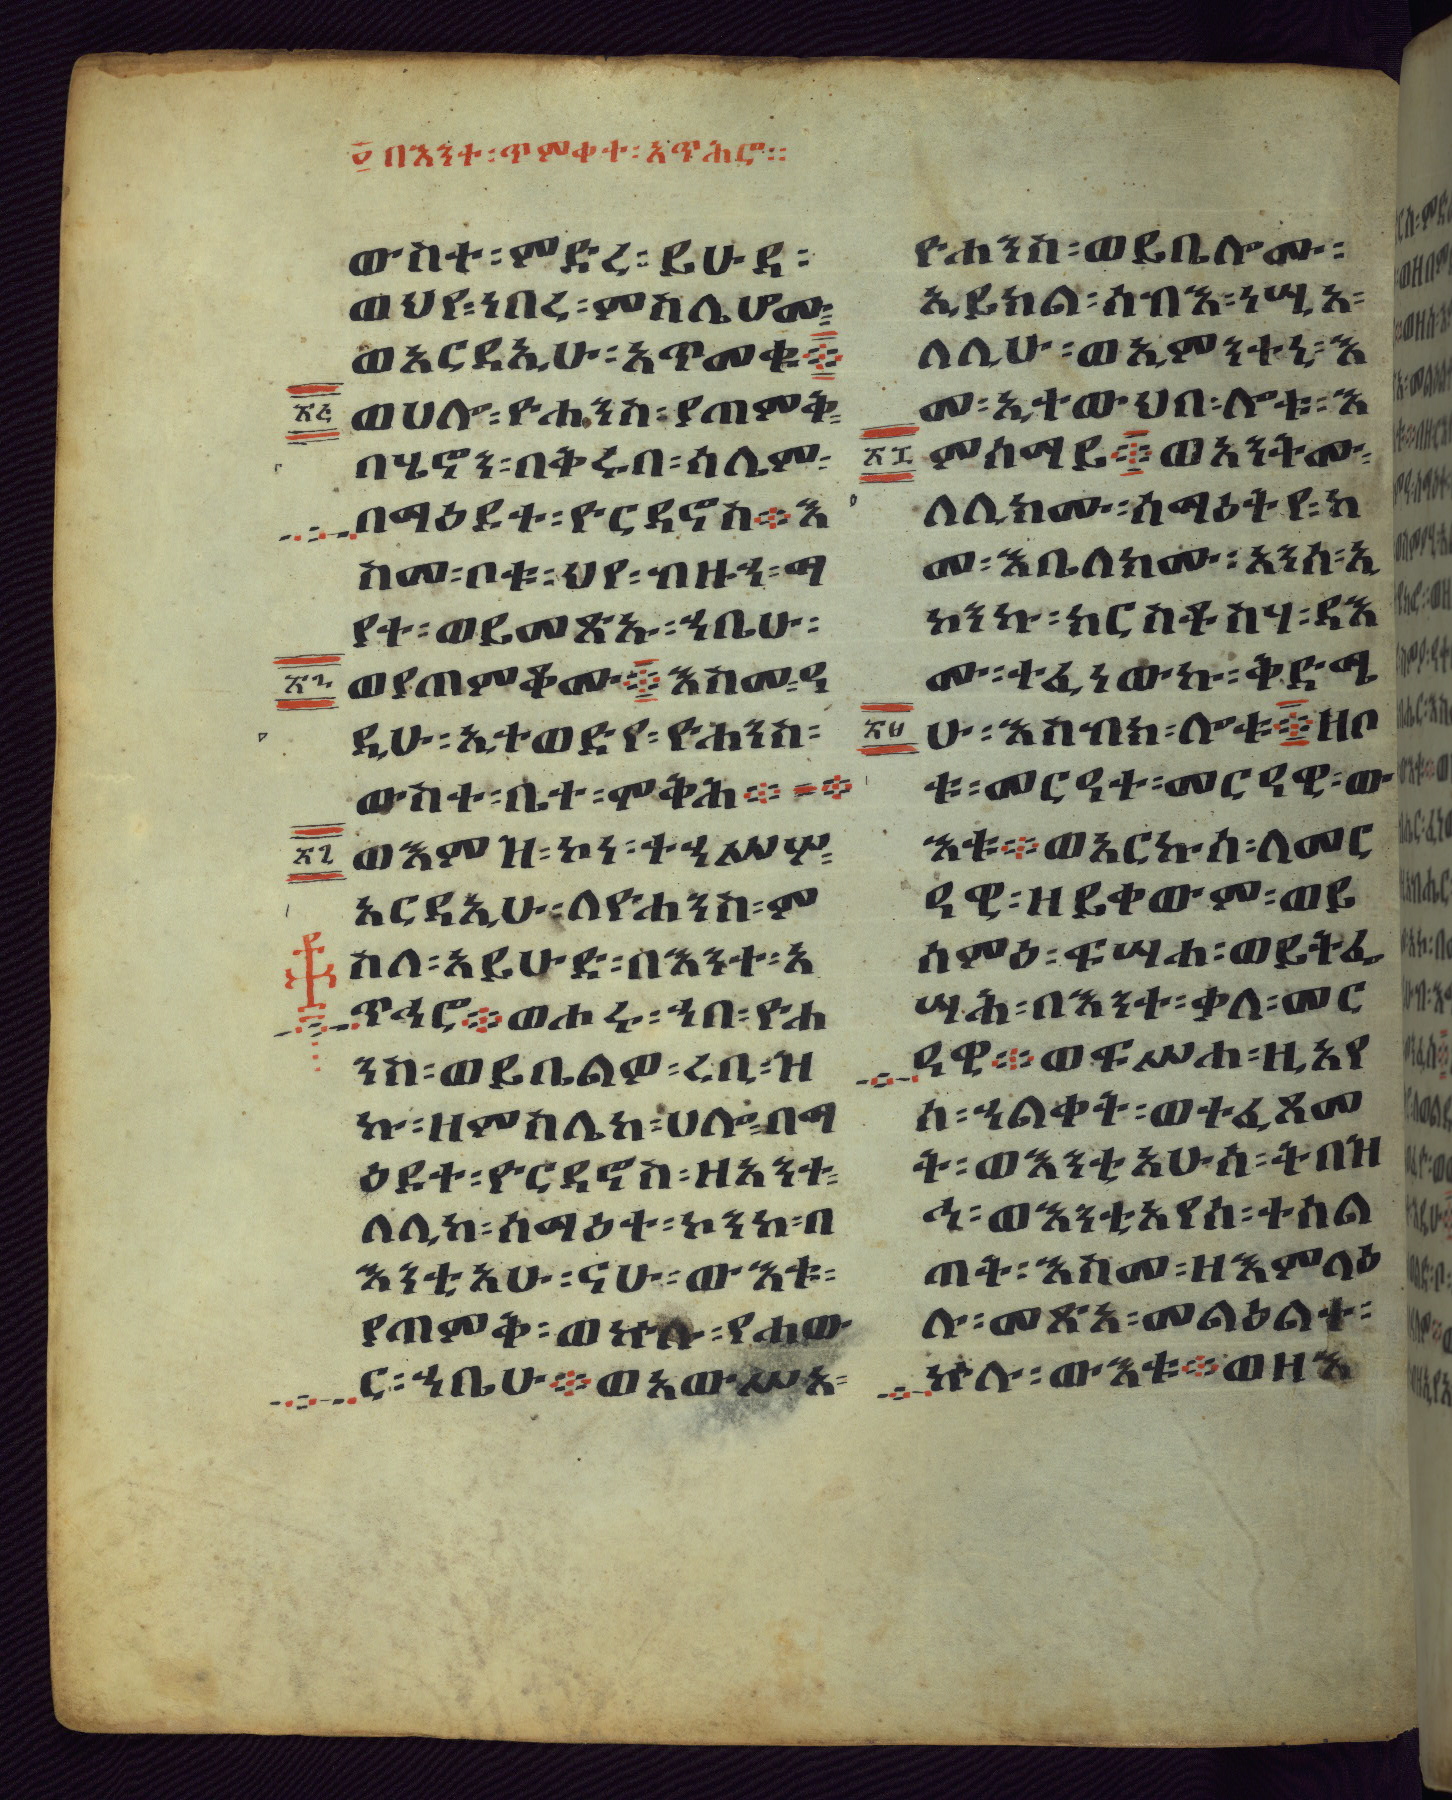 ፬ በእንተ፡ጥምቀተ፡አጥሕሮ፡፡
ውስተ፡ምድረ፡ይሁዳ፡
ወህየ፡ነበረ፡ምስሌሆሙ፡
ወአርዳኢሁ፡አጥመቁ፨
ወሀሎ፡ዮሐንስ፡ያጠምቅ፡
በሄኖን፡በቅሩበ፡ሳሌም፡
በማዕዶተ፡ዮርዳኖስ፨እ
ስመ፡ቦቱ፡ህየ፡ብዙኃ፡ማ
ያተ፡ወይመጽኡ፡ኀቤሁ፡
ወያጠምቆሙ፨እስመ፡ዓ
ዲሁ፡ኢተወድየ፡ዮሐንስ፡
ውስተ፡ቤተ፡ምቅሕ፨
ወእምዝ፡ኮነ፡ተኃሠሦ፡
አርዳኢሁ፡ለዮሐንስ፡ም
ስለ፡አይሁድ፡በእንተ፡አ
ጥሕሮ፨ወሐሩ፡ኀበ፡ዮሐ
ንስ፡ወይቤልዎ፡ረቢ፡ዝ
ኩ፡ዘምስሌከ፡ሀሎ፡በማ
ዕዶተ፡ዮርዳኖስ፡ዘአንተ፡
ለሊከ፡ሰማዕተ፡ኮንከ፡በ
እንቲአሁ፡ናሁ፡ውእቱ፡
ያጠምቅ፡ወኵሉ፡የሐው
ር፡ኀቤሁ፨ወአውሥአ፡
ዮሐንስ፡ወይቤሎሙ፡
ኢይክል፡ሰብእ፡ነሢአ፡
ለሊሁ፡ወኢምንተኒ፡እ
መ፡ኢተውህበ፡ሎቱ፡እ
ምሰማይ፨ወአንትሙ፡
ለሊክሙ፡ሰማዕትየ፡ከ
መ፡እቤለክሙ፡አንሰ፡ኢ
ኮንኩ፡ክርስቶስሃ፡ዳእ
ሙ፡ተፈነውኩ፡ቅድሜ
ሁ፡እስብክ፡ሎቱ፨ዘቦ
ቱ፡መርዓተ፡መርዓዊ፡ው
እቱ፨ወአርኩሰ፡ለመር
ዓዊ፡ዘይቀውም፡ወይ
ሰምዕ፡ፍሣሐ፡ወይትፌ
ሣሕ፡በእንተ፡ቃለ፡መር
ዓዊ፨ወፍሥሐ፡ዚአየ
ሰ፡ኃልቀት፡ወተፈጸመ
ት፡ወእንቲአሁሰ፡ትበዝ
ኅ፡ወእንቲአየሰ፡ተሐል
ጠት፡እስመ፡ዘእምላዕ
ሉ፡መጽአ፡መልዕልተ፡
ኵሉ፡ውእቱ፨ወዘእ